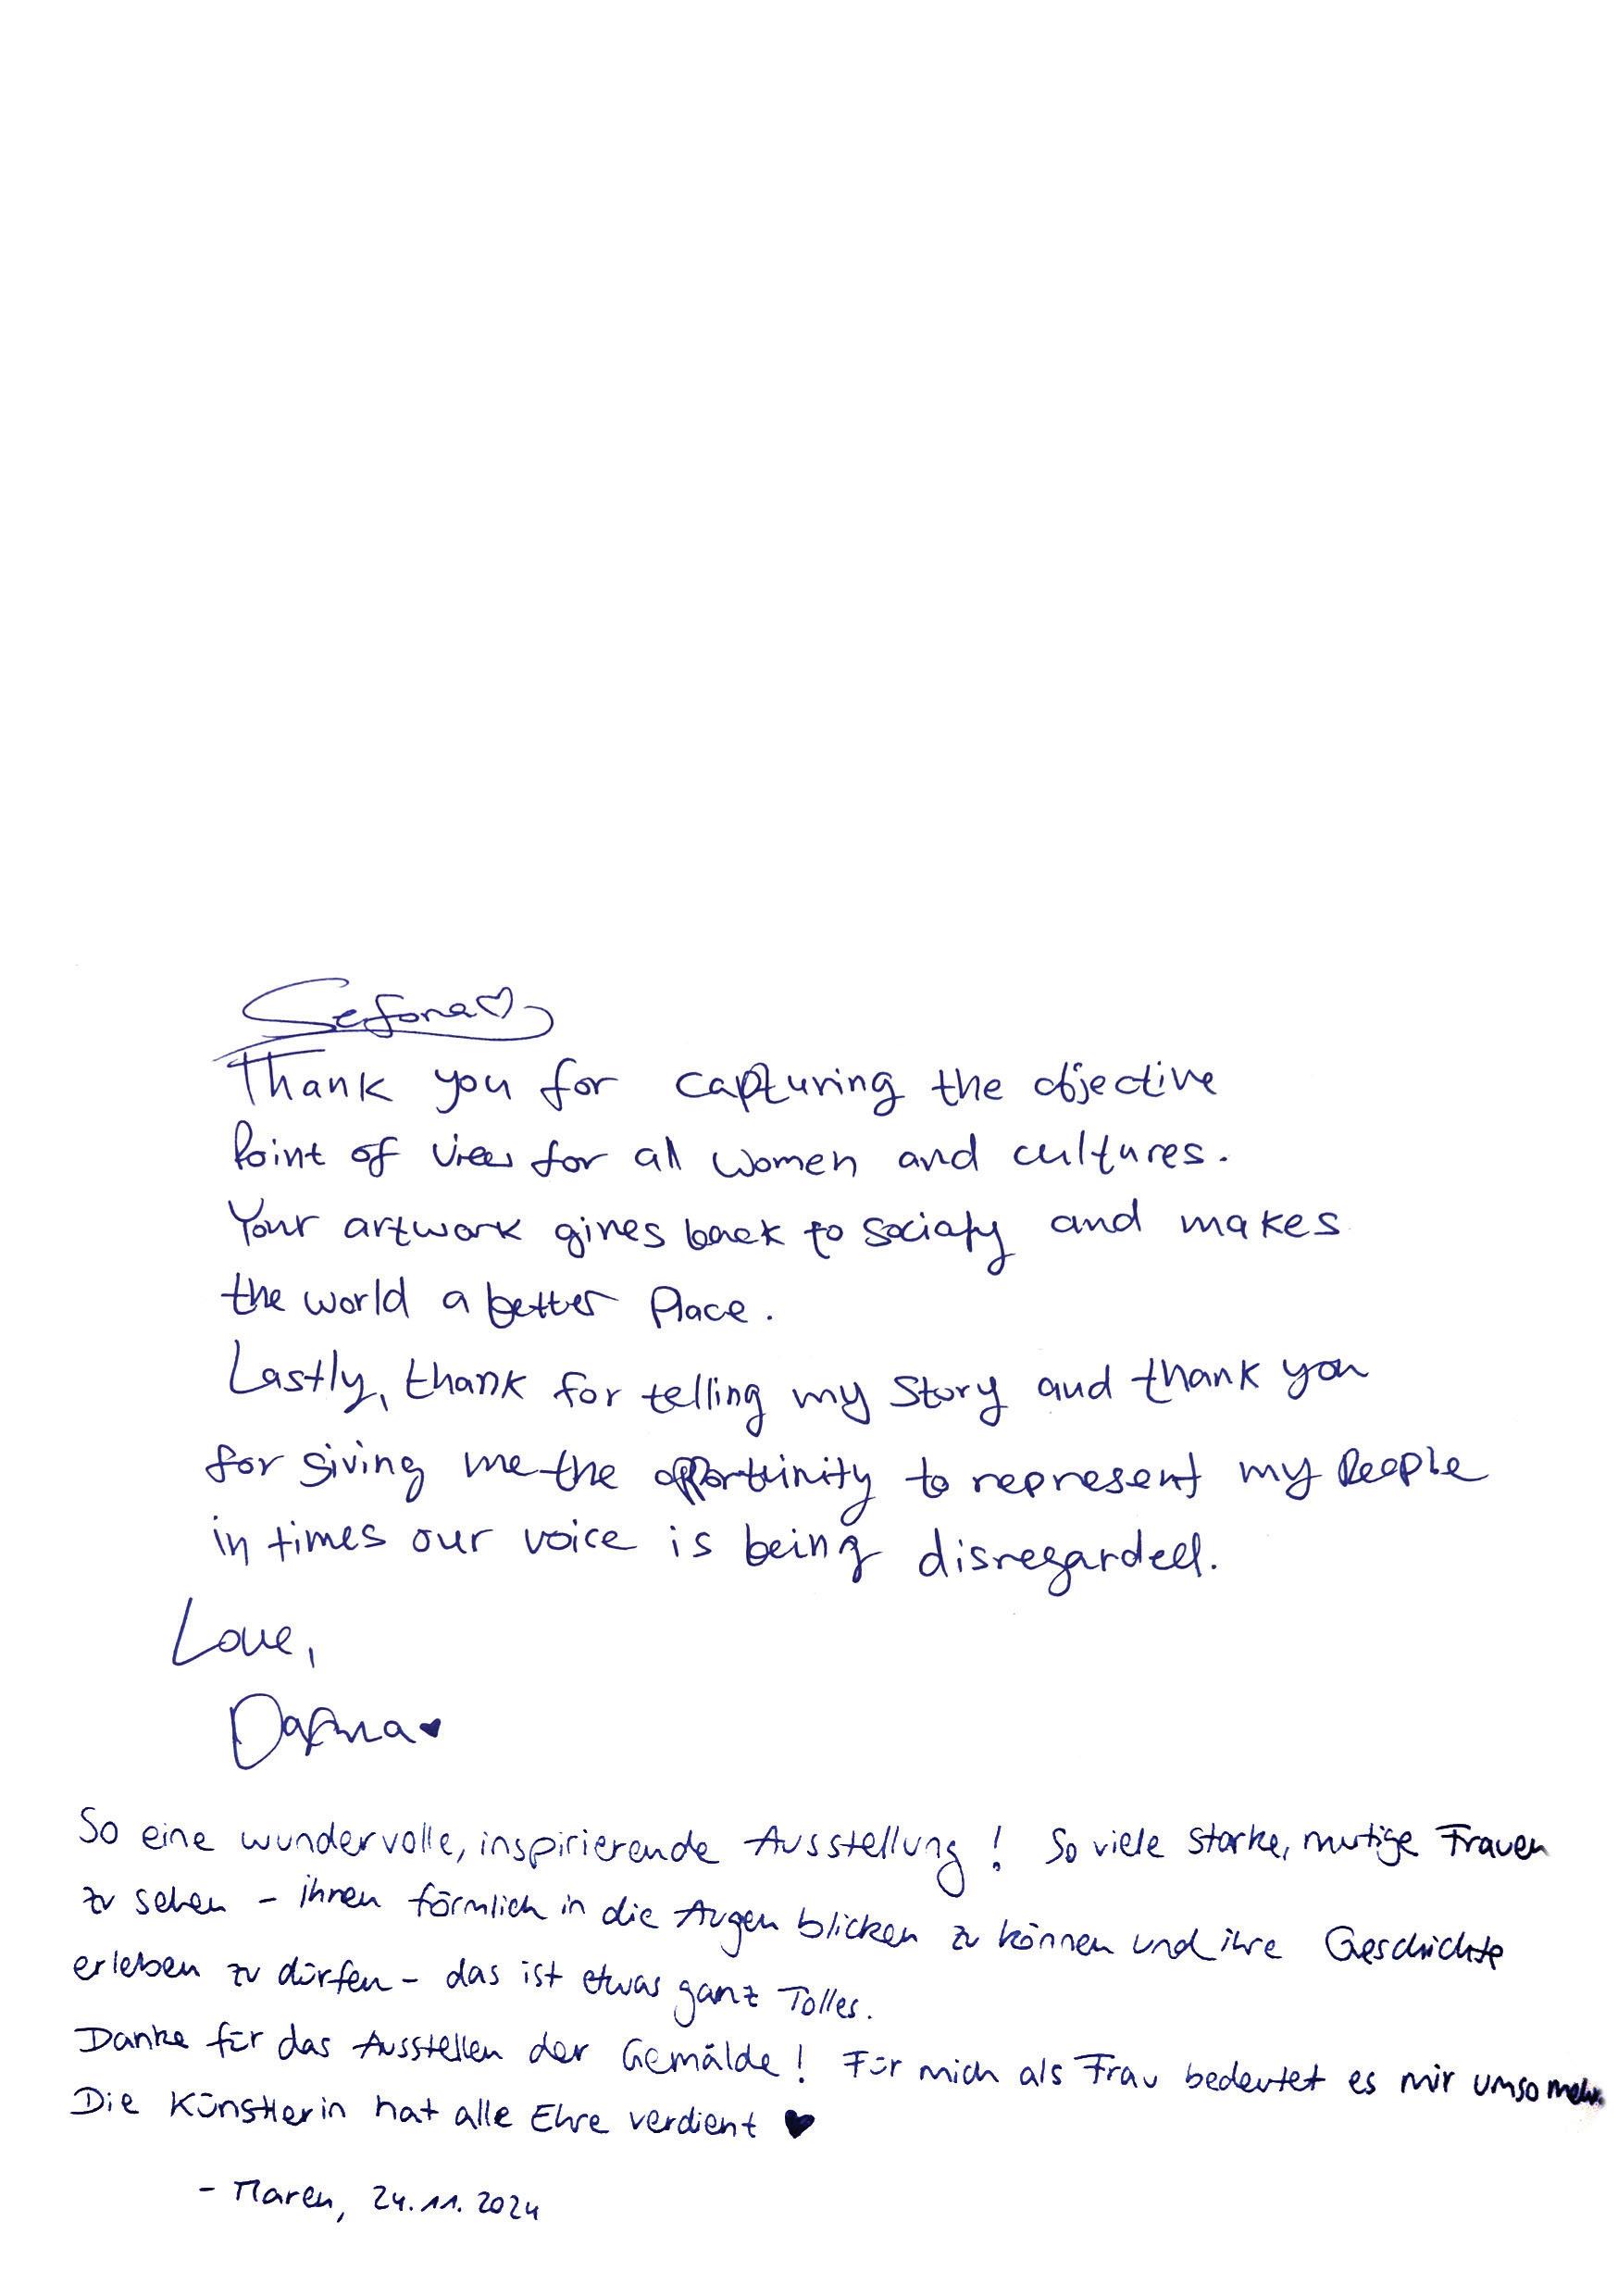 Sefora♡
Thank you for capturing the objective
Point of view for all women and cultures.
Your artwork gives back to sociaty and makes
the world a better Place.
Lastly, thank for telling my Story and thank you
for giving me the opportunity to represent my People
in times our voice is being disregarded.
Love,
Dafina♥
So eine wundervolle, inspirierende Ausstellung! So viele starke, mutige Frauen
zu sehen – ihnen förmlich in die Augen blicken zu können und ihre Geschichte
erleben zu dürfen – das ist etwas ganz Tolles.
Danke für das Ausstellen der Gemälde! Für mich als Frau bedeutet es mir umso mehr.
Die Künstlerin hat alle Ehre verdient ♥
– Maren, 24.11.2024